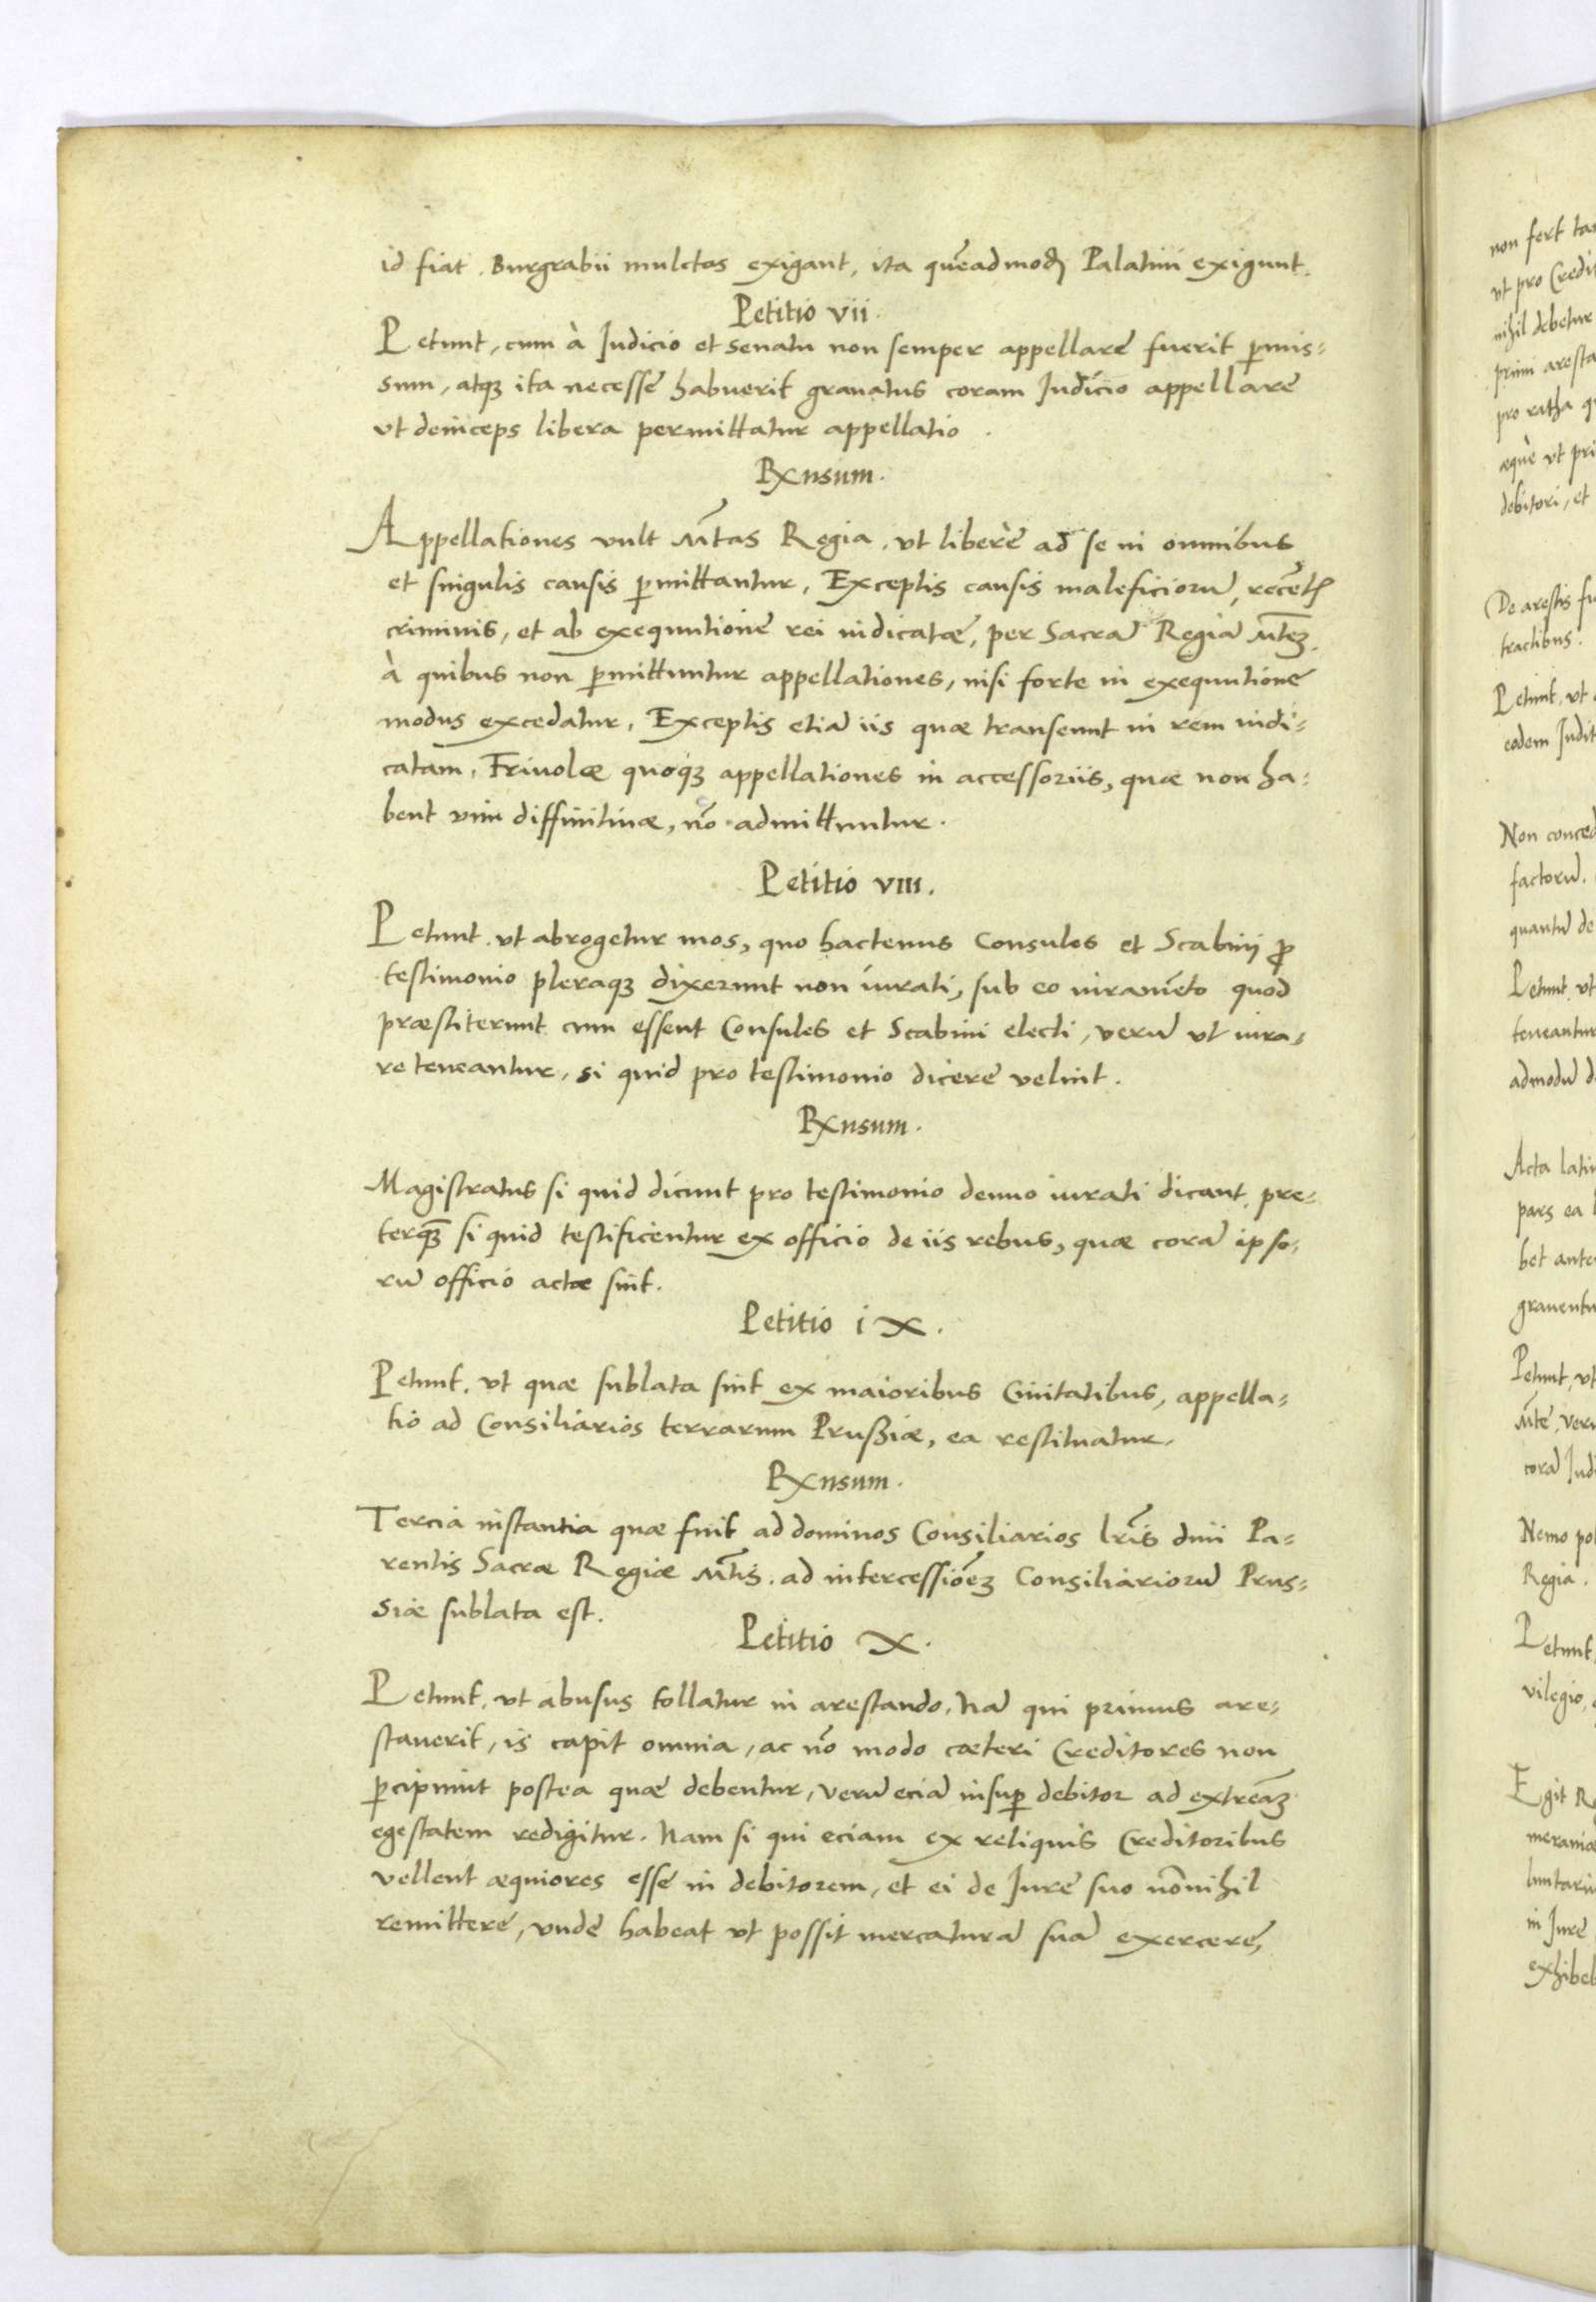 id fiat. Burgrabii mulctas exigant, ita quēadmodꝫ Palatini exigunt.
Petitio vii.
Petunt, cum à Judicio et Senatu non semper appellare fuerit ꝑmis-
sum, atqꝫ ita necesse habuerit grauatus coram Judicio appellare
vt deinceps libera permittatur appellatio.
Rxnsum.
Appellationes vult Mtas Regia, vt liberè ad se in omnibus
et singulis causis ꝑmittantur, Exceptis causis maleficiorū, recētis
criminis, et ab exequutione rei iudicatæ, per Sacrā Regiā Mtēꝫ.
à quibus non ꝑmittuntur appellationes, nisi forte in exequutione
modus excedatur, Exceptis etiā iis quæ transeunt in rem iudi-
catam, Friuolæ quoqꝫ appellationes in accessoriis, quæ non ha-
bent vim diffinitiuæ, nō admittuntur.
Petitio viii.
Petunt, vt abrogetur mos, quo hactenus Consules et Scabinij ꝓ
testimonio pleraqꝫ dixerunt non iurati, sub eo iuramēto quod
præstiterunt cum essent Consules et Scabini electi, verū vt iura-
re teneantur, si quid pro testimonio dicere velint.
Rxnsum.
Magistratus si quid dicunt pro testimonio denuo iurati dicant, pre-
terqꝫ̄ si quid testificentur ex officio de iis rebus, quæ corā ipso-
rū officio actæ sint.
Petitio ix.
Petunt, vt quæ sublata sint ex maioribus Ciuitatibus, appella-
tio ad Consiliarios terrarum Prußiæ, ea restituatur.
Rxnsum.
Tercia instantia quæ fuit ad dominos Consiliarios lris̄ diui Pa-
rentis Sacræ Regiæ Mtis̄. ad intercessiōeꝫ Consiliariorū Prus-
siæ sublata est.
Petitio x.
Petunt, vt abusus tollatur in arestando, Nā qui primus are-
stauerit, is capit omnia, ac nō modo cæteri Creditores non
ꝑcipiunt postea quæ debentur, verū eciā insuꝑ debitor ad extreāꝫ
egestatem redigitur. Nam si qui eciam ex reliquis Creditoribus
vellent æquiores esse in debitorem, et ei de Jure suo nōnihil
remittere, vnde habeat vt possit mercaturā suā exercere,
non fert
vt pro
nihil debetur
primi
pro ratha
æquè vt
debitori, et
De arestis
tractibus.
Petunt, vt
eodem
Non
factorū.
quantū de
Petunt, vt
teneantur
admodū
Acta
pars ea
bet
Petunt, vt
corā
Nemo
Regia.
Petunt,
vilegio,
Egit
in Jure